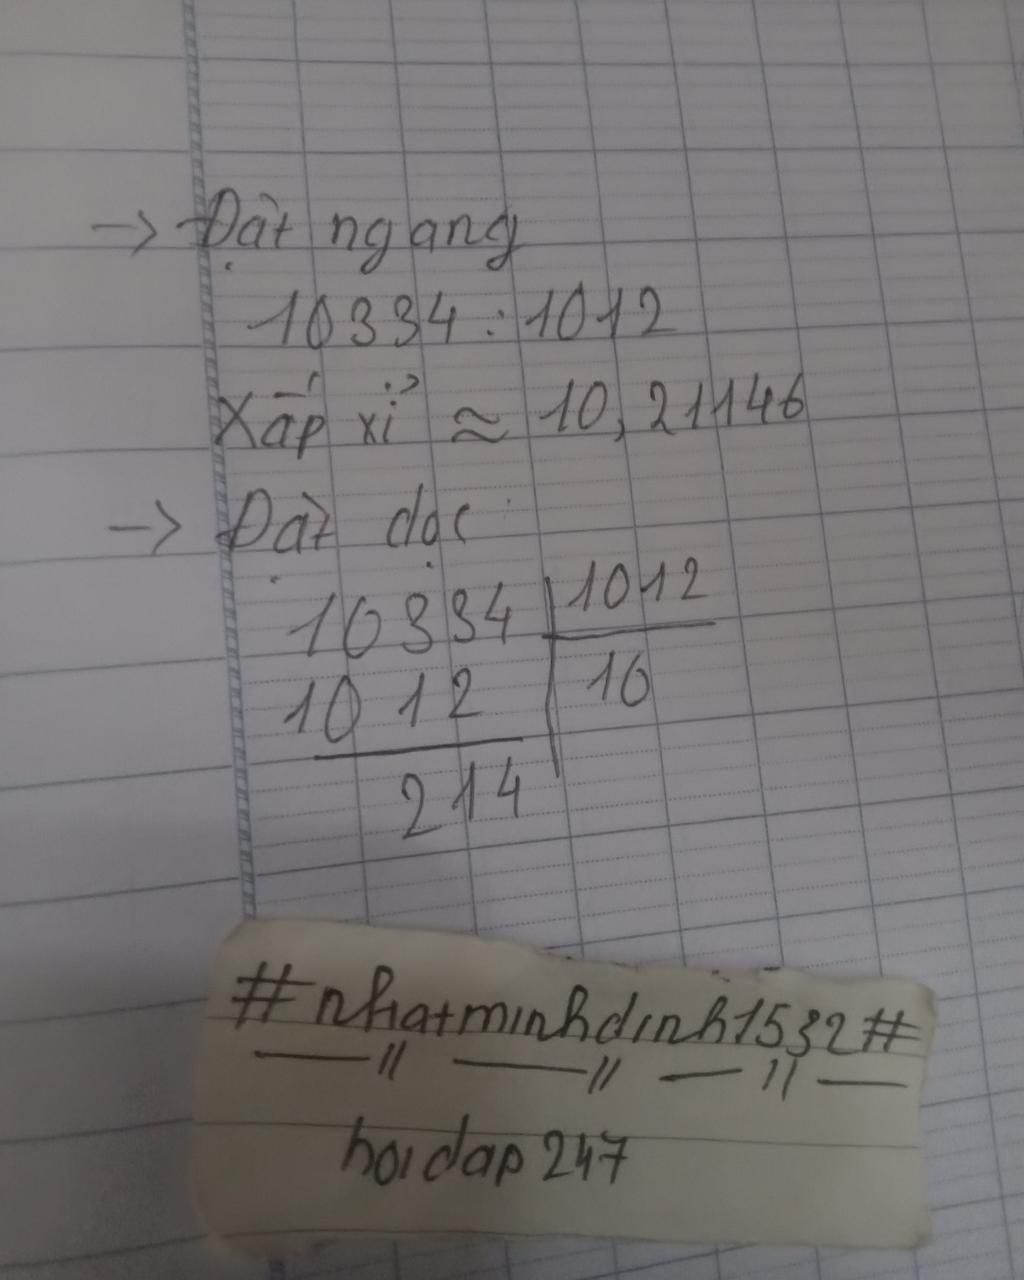 → Đặt ngang
10334 : 1012
Xấp xỉ ≈ 10,21146
→ Đặt dọc
10334 1012
1012 10
214
#nhatminhdinh1532#
hoidap247